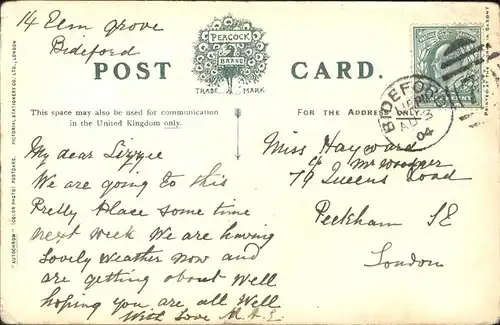 14 Elm Grove
Bideford
PEACOCK
BRAND
TRADE MARK
POST CARD.
This space may also be used for communication
in the United Kingdom only.
FOR THE ADDRESS ONLY.
BIDEFORD
AU
04
"AUTOCHROM" (COLOR PHOTO) POSTCARD. PICTORIAL STATIONERY CO. LTD., LONDON
My dear Lizzie
We are going to this
Pretty Place some time
next week We are having
Lovely Weather now and
are getting about Well
hoping you are all Well
With Love M.A.E.
Miss Hayward
c/o Mr
79 Queens Road
Peckham SE
London